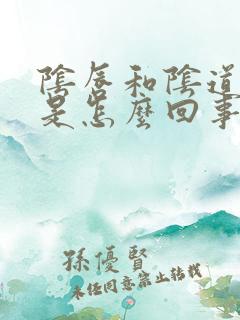 陰唇和陰道
是怎麼回事
孫優賢
未經同意禁止轉載